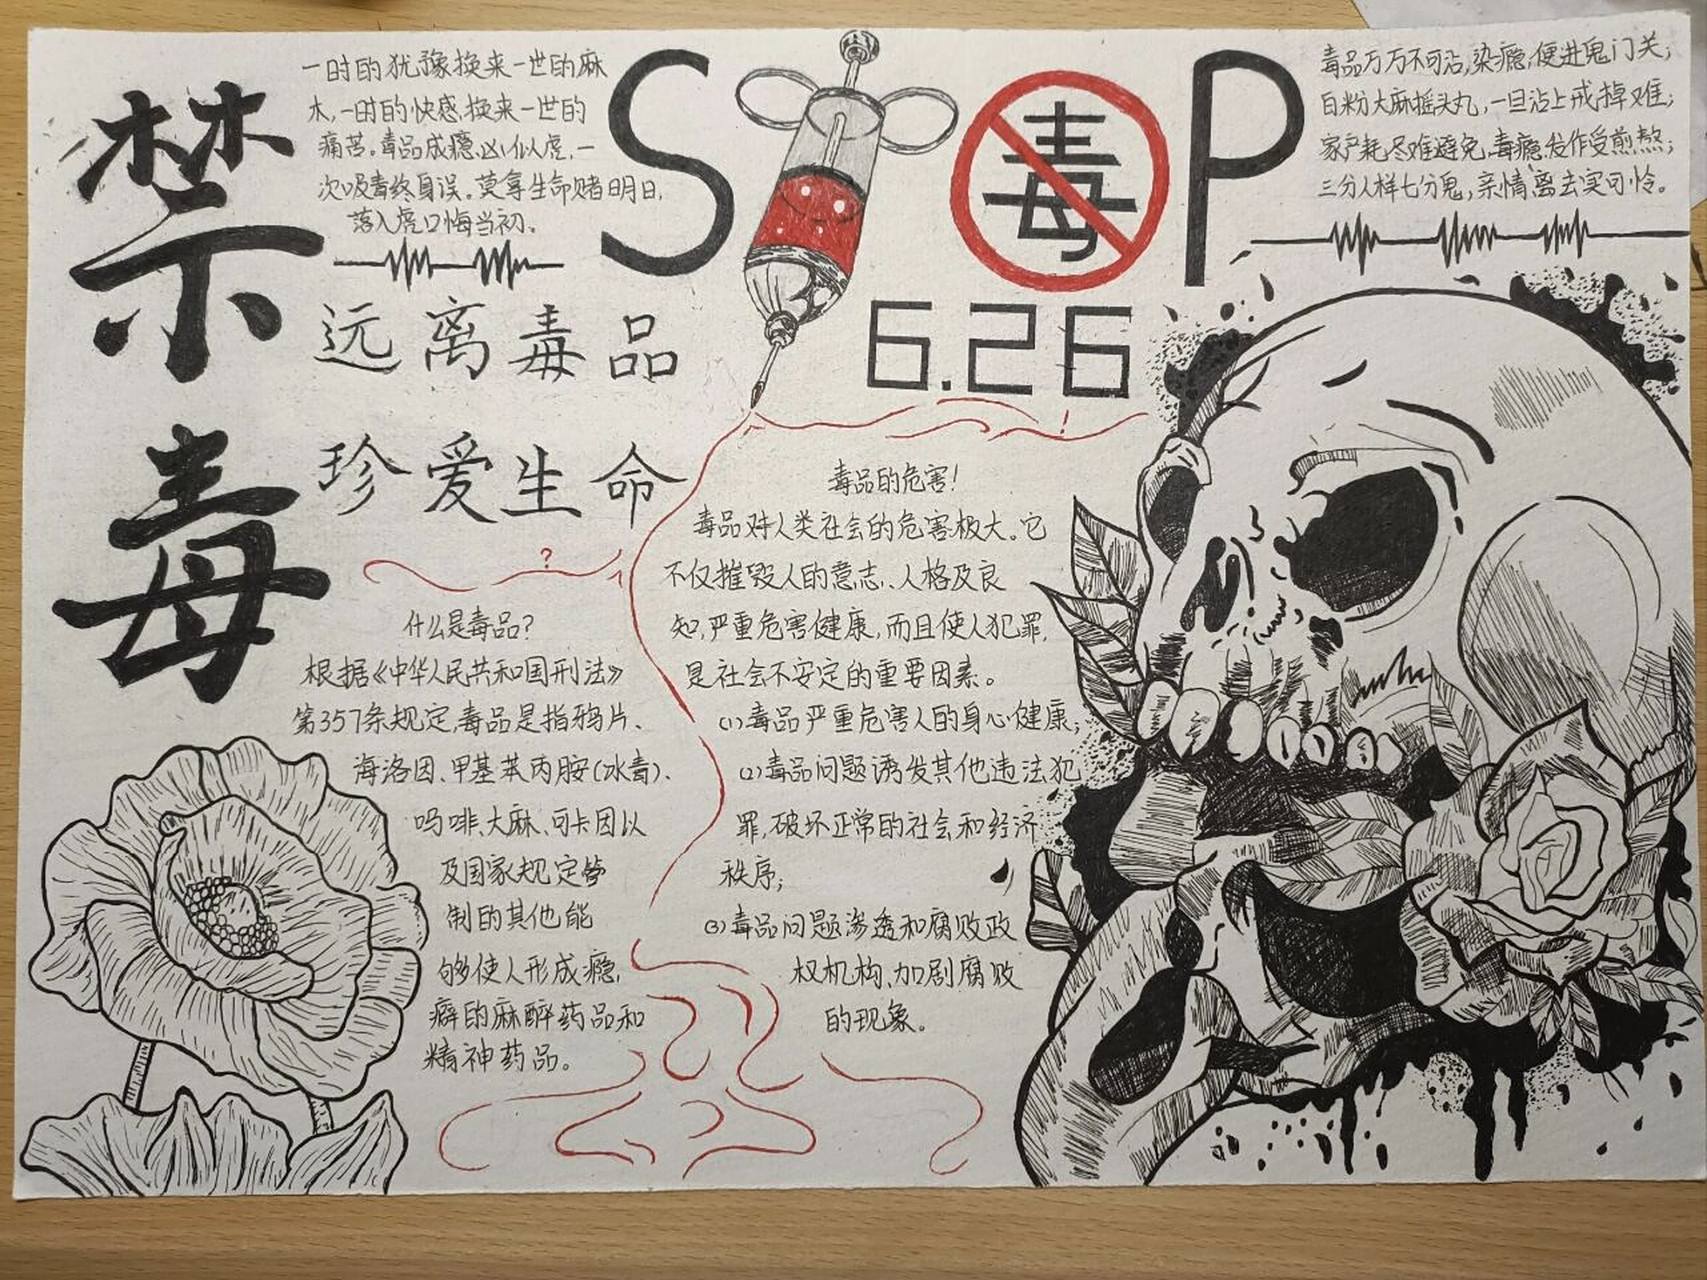 禁毒
一时的犹豫换来一世的麻
木,一时的快感,换来一世的
痛苦。毒品成瘾凶似虎,一
次吸毒终身误。莫拿生命赌明日,
落入虎口悔当初。
STOP
毒
6.26
毒品万万不可沾,染瘾,便进鬼门关;
白粉大麻摇头丸,一旦沾上戒掉难;
家产耗尽难避免,毒瘾发作受煎熬;
三分人样七分鬼,亲情离去实可怜。
远离毒品
珍爱生命
?
!
什么是毒品?
根据《中华人民共和国刑法》
第357条规定,毒品是指鸦片、
海洛因、甲基苯丙胺(冰毒)、
吗啡、大麻、可卡因以
及国家规定管
制的其他能
够使人形成瘾
癖的麻醉药品和
精神药品。
毒品的危害!
毒品对人类社会的危害极大。它
不仅摧毁人的意志、人格及良
知,严重危害健康,而且使人犯罪,
是社会不安定的重要因素。
(1)毒品严重危害人的身心健康;
(2)毒品问题诱发其他违法犯
罪,破坏正常的社会和经济
秩序;
(3)毒品问题渗透和腐败政
权机构,加剧腐败
的现象。